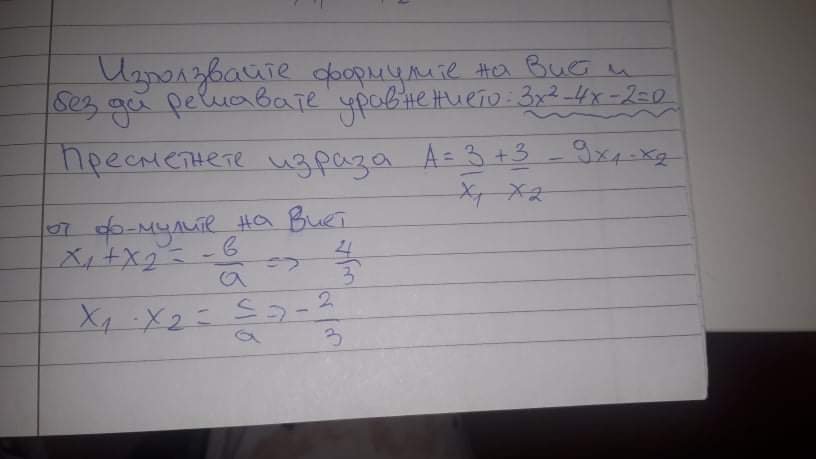 Използвайте формулите на Виет и
без да решавате уравнението: 3x²-4x-2=0
Пресметнете израза A = 3/x₁ + 3/x₂ - 9x₁·x₂
от фо-мулите на Виет
x₁+x₂ = -b/a => 4/3
x₁·x₂ = c/a => -2/3